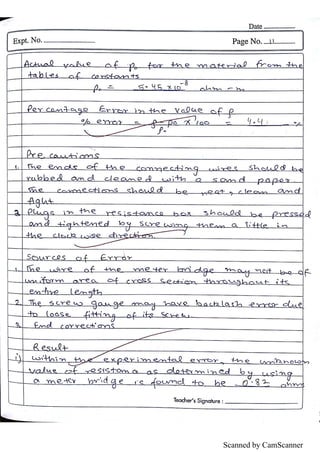 Date
Expt. No.
Page No. 11
Actual value of ρ₀ for the material from the
tables of constants
ρ₀ = 5.45 x 10⁻⁸ ohm-m
Percentage Error in the value of ρ
% error = ρ-ρ₀ x 100 = 4.4%
ρ₀
Precautions
1. The ends of the connecting wires should be
rubbed and cleaned with a sand paper.
The connections should be neat, clean and
tight
2. Plugs in the resistance box should be pressed
and tightened by screwing them a little in
the clockwise direction.
Sources of Error
1. The wire of the meter bridge may not be of
uniform area of cross section throughout its
entire length
2. The screw gauge may have backlash error due
to loose fitting of its screw.
3. End corrections
Result
i) within the experimental error, the unknown
value of resistana as determined by using
a meter bridge is found to be 0.82 ohms
Teacher's Signature :
Scanned by CamScanner